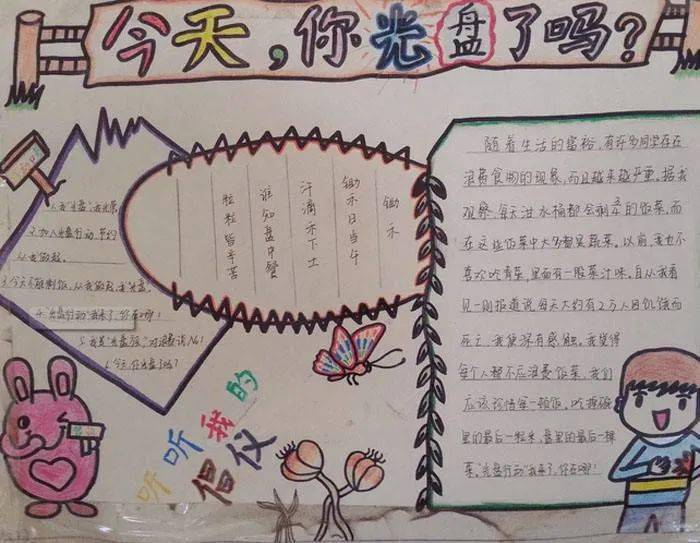 今天,你光盘了吗?
1.我"光盘"我光荣
2.加入光盘行动,节约
从我做起。
3.今天不剩饭,从我做起,我光盘。
4.光盘行动"我来了,你在哪!
5.我是"光盘族",对浪费说No!
6.今天,你光盘了吗?
锄禾
锄禾日当午
汗滴禾下土
谁知盘中餐
粒粒皆辛苦
听听我的
倡仪
随着生活的富裕,有许多同学存在
浪费食物的现象,而且越来越严重,据我
观察,每天泔水桶都会剩的饭菜,而
在这些饭菜中大多都是蔬菜。以前,我也不
喜欢吃青菜,里面有一股菜汁味,自从我看
见一则报道说每天大约有2万人因饥饿而
死亡,我便深有感触。我觉得
每个人都不应浪费饭菜,我们
应该珍惜每一顿饭,吃掉碗
里的最后一粒米,盘里的最后一棵
菜,"光盘行动"我来了,你在哪!